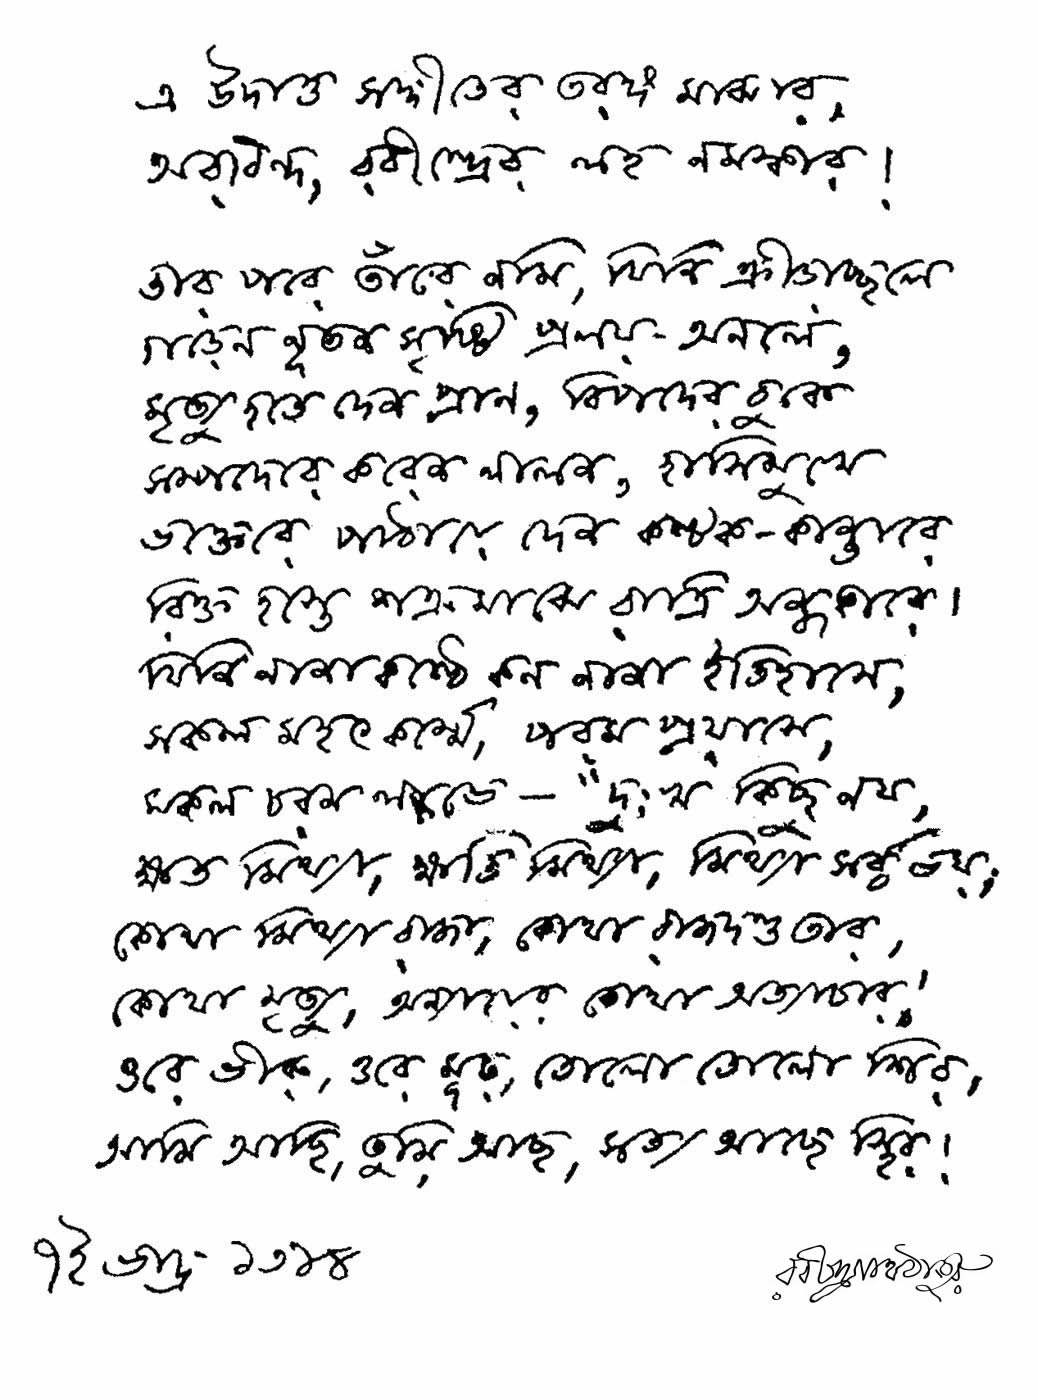 এ উদাত্ত সঙ্গীতের তরঙ্গ মাঝার,
অরবিন্দ, রবীন্দ্রের লহ নমস্কার!
তার পরে তাঁরে নমি, যিনি ক্রীড়াচ্ছলে
গড়েন নূতন সৃষ্টি প্রলয়-অনলে,
মৃত্যু হতে দেন প্রাণ, বিপদের বুকে
সম্পদেরে করেন লালন, হাসিমুখে
ভক্তেরে পাঠায়ে দেন কণ্টক-কান্তারে
রিক্ত হস্তে শত্রুমাঝে রাত্রি অন্ধকারে।
যিনি নানা কণ্ঠে কন নানা ইতিহাসে,
সকল মহৎ কর্ম্মে, পরম প্রয়াসে,
সকল চরম লাভে — "দুঃখ কিছু নয়,
ক্ষত মিথ্যা, ক্ষতি মিথ্যা, মিথ্যা সর্ব্ব ভয়;
কোথা মিথ্যা রাজা, কোথা রাজদণ্ড তার,
কোথা মৃত্যু, অন্যায়ের কোথা অত্যাচার!
ওরে ভীরু, ওরে মূঢ়, তোলো তোলো শির,
আমি আছি, তুমি আছ, সত্য আছে স্থির!
৭ই ভাদ্র ১৩১৪
রবীন্দ্রনাথ ঠাকুর